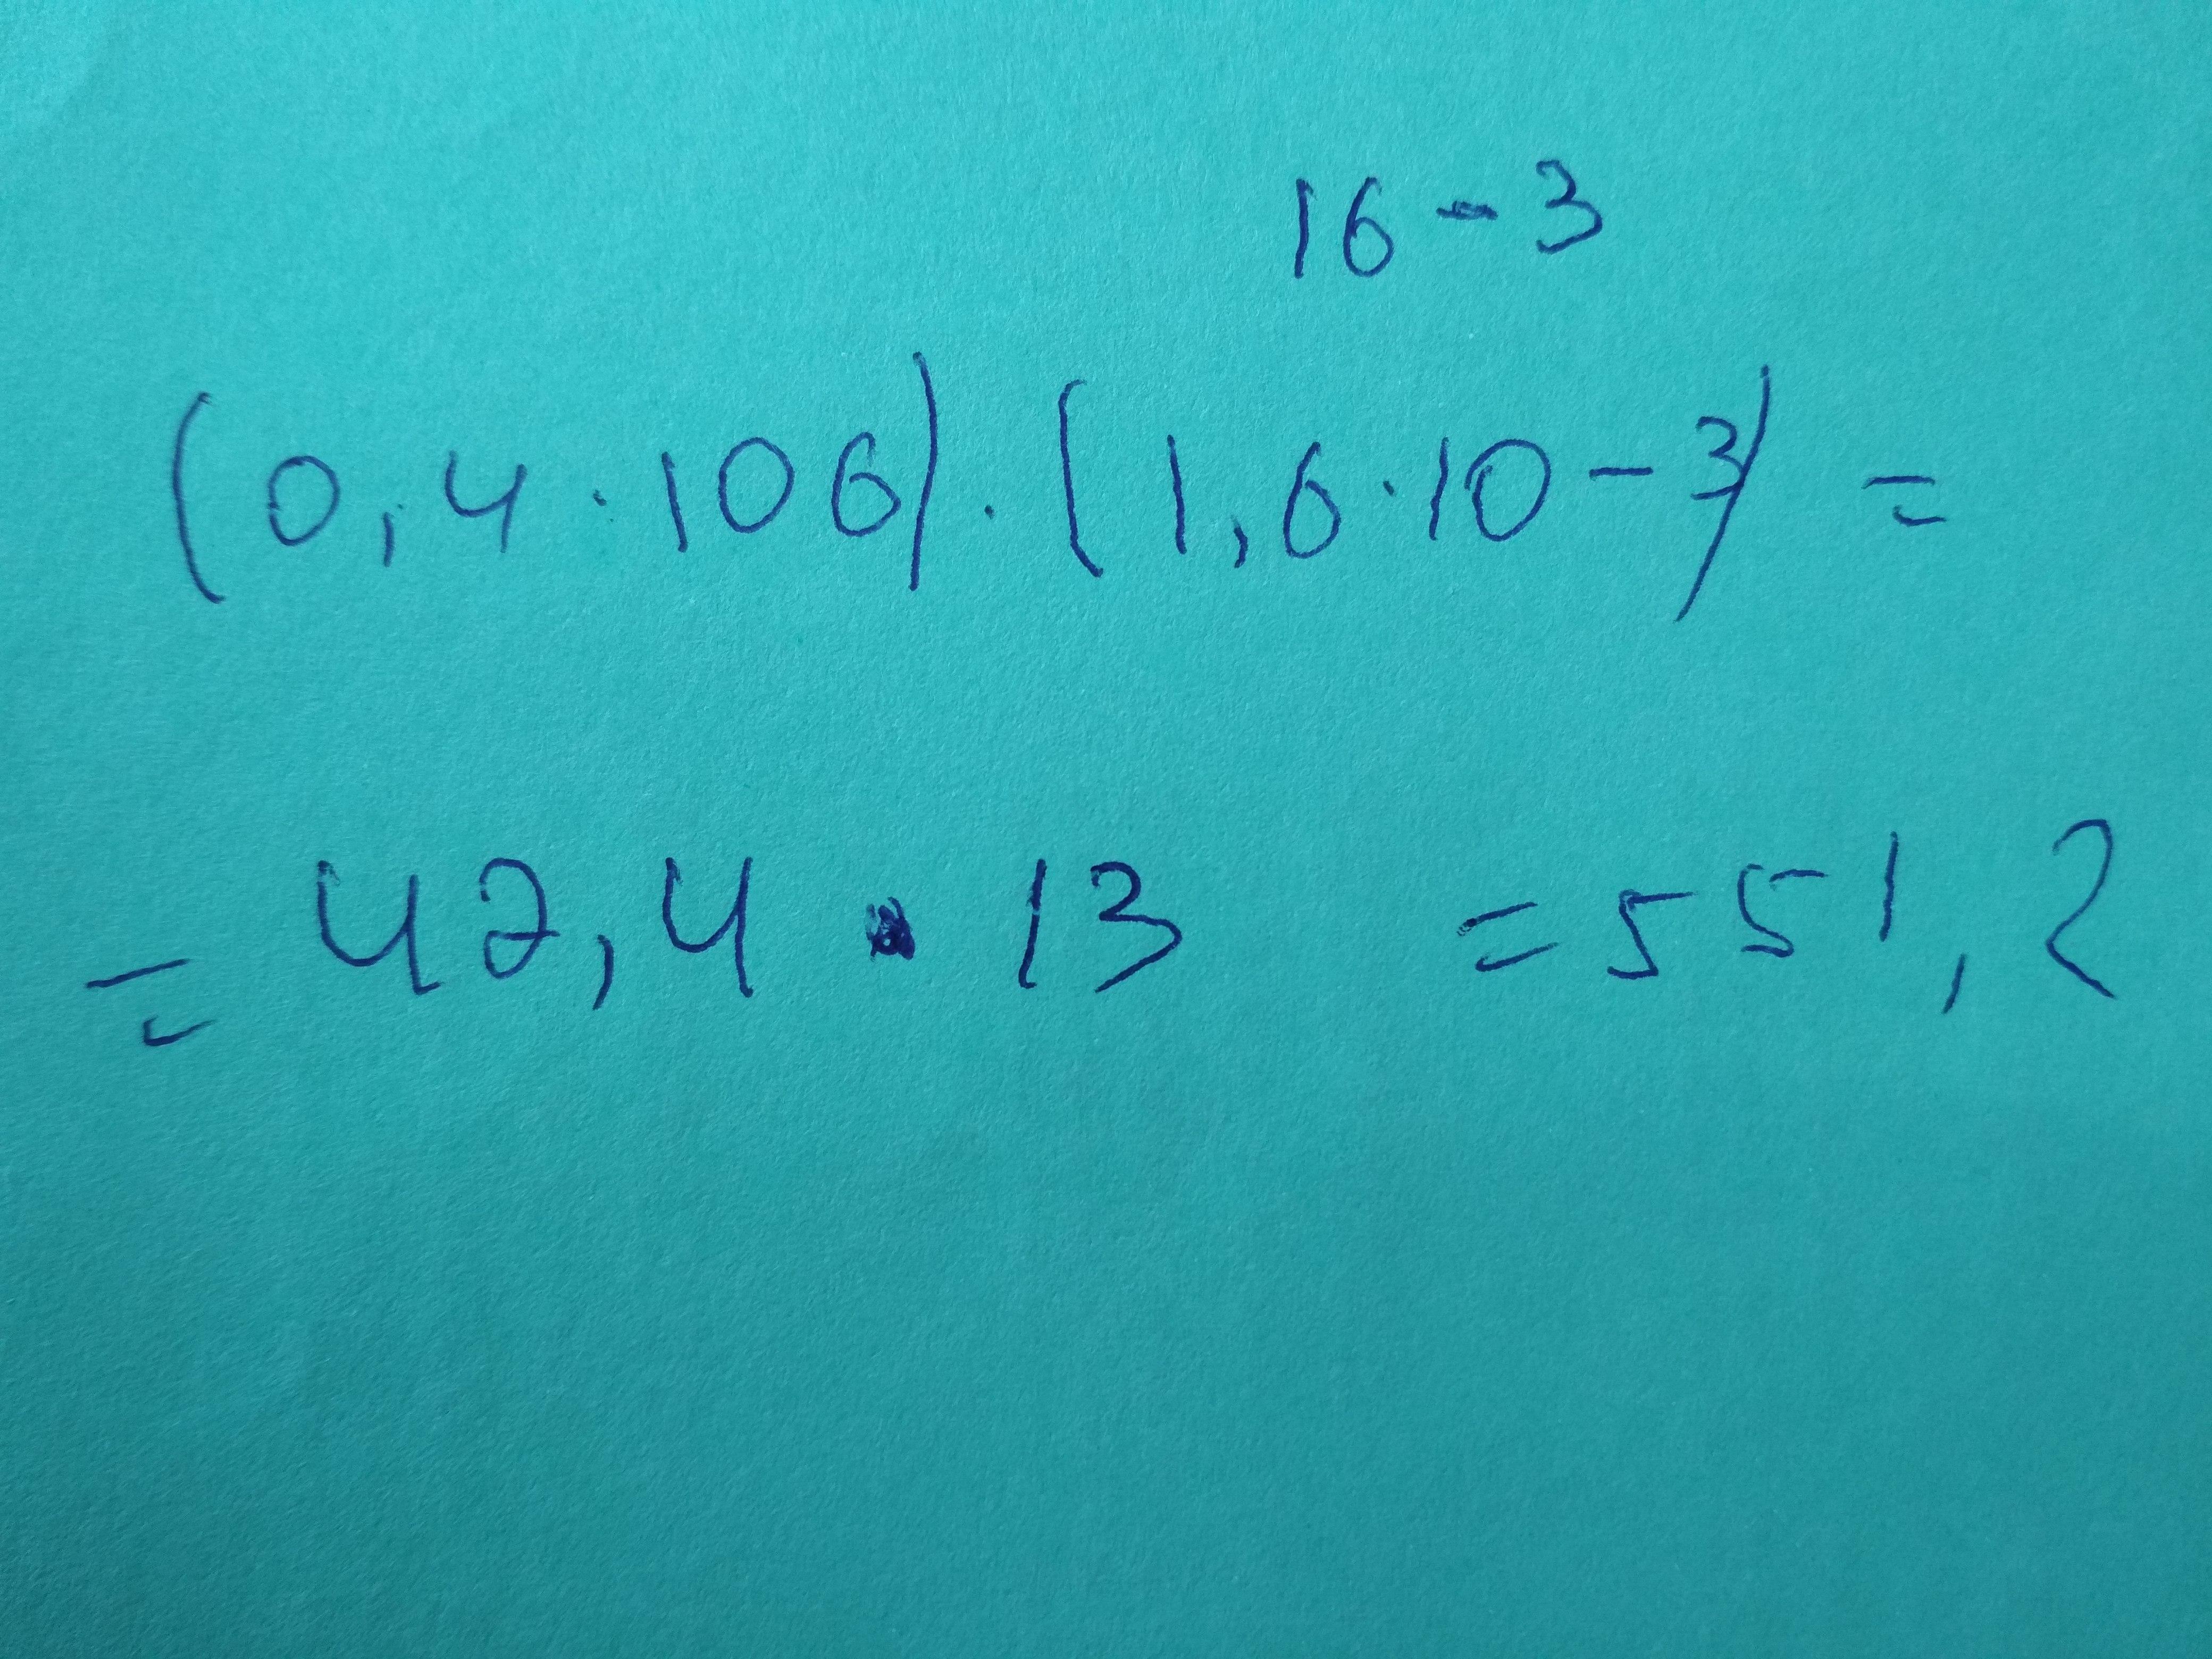 16-3
(0,4·106)·(1,6·10-3)=
=42,4·13=551,2